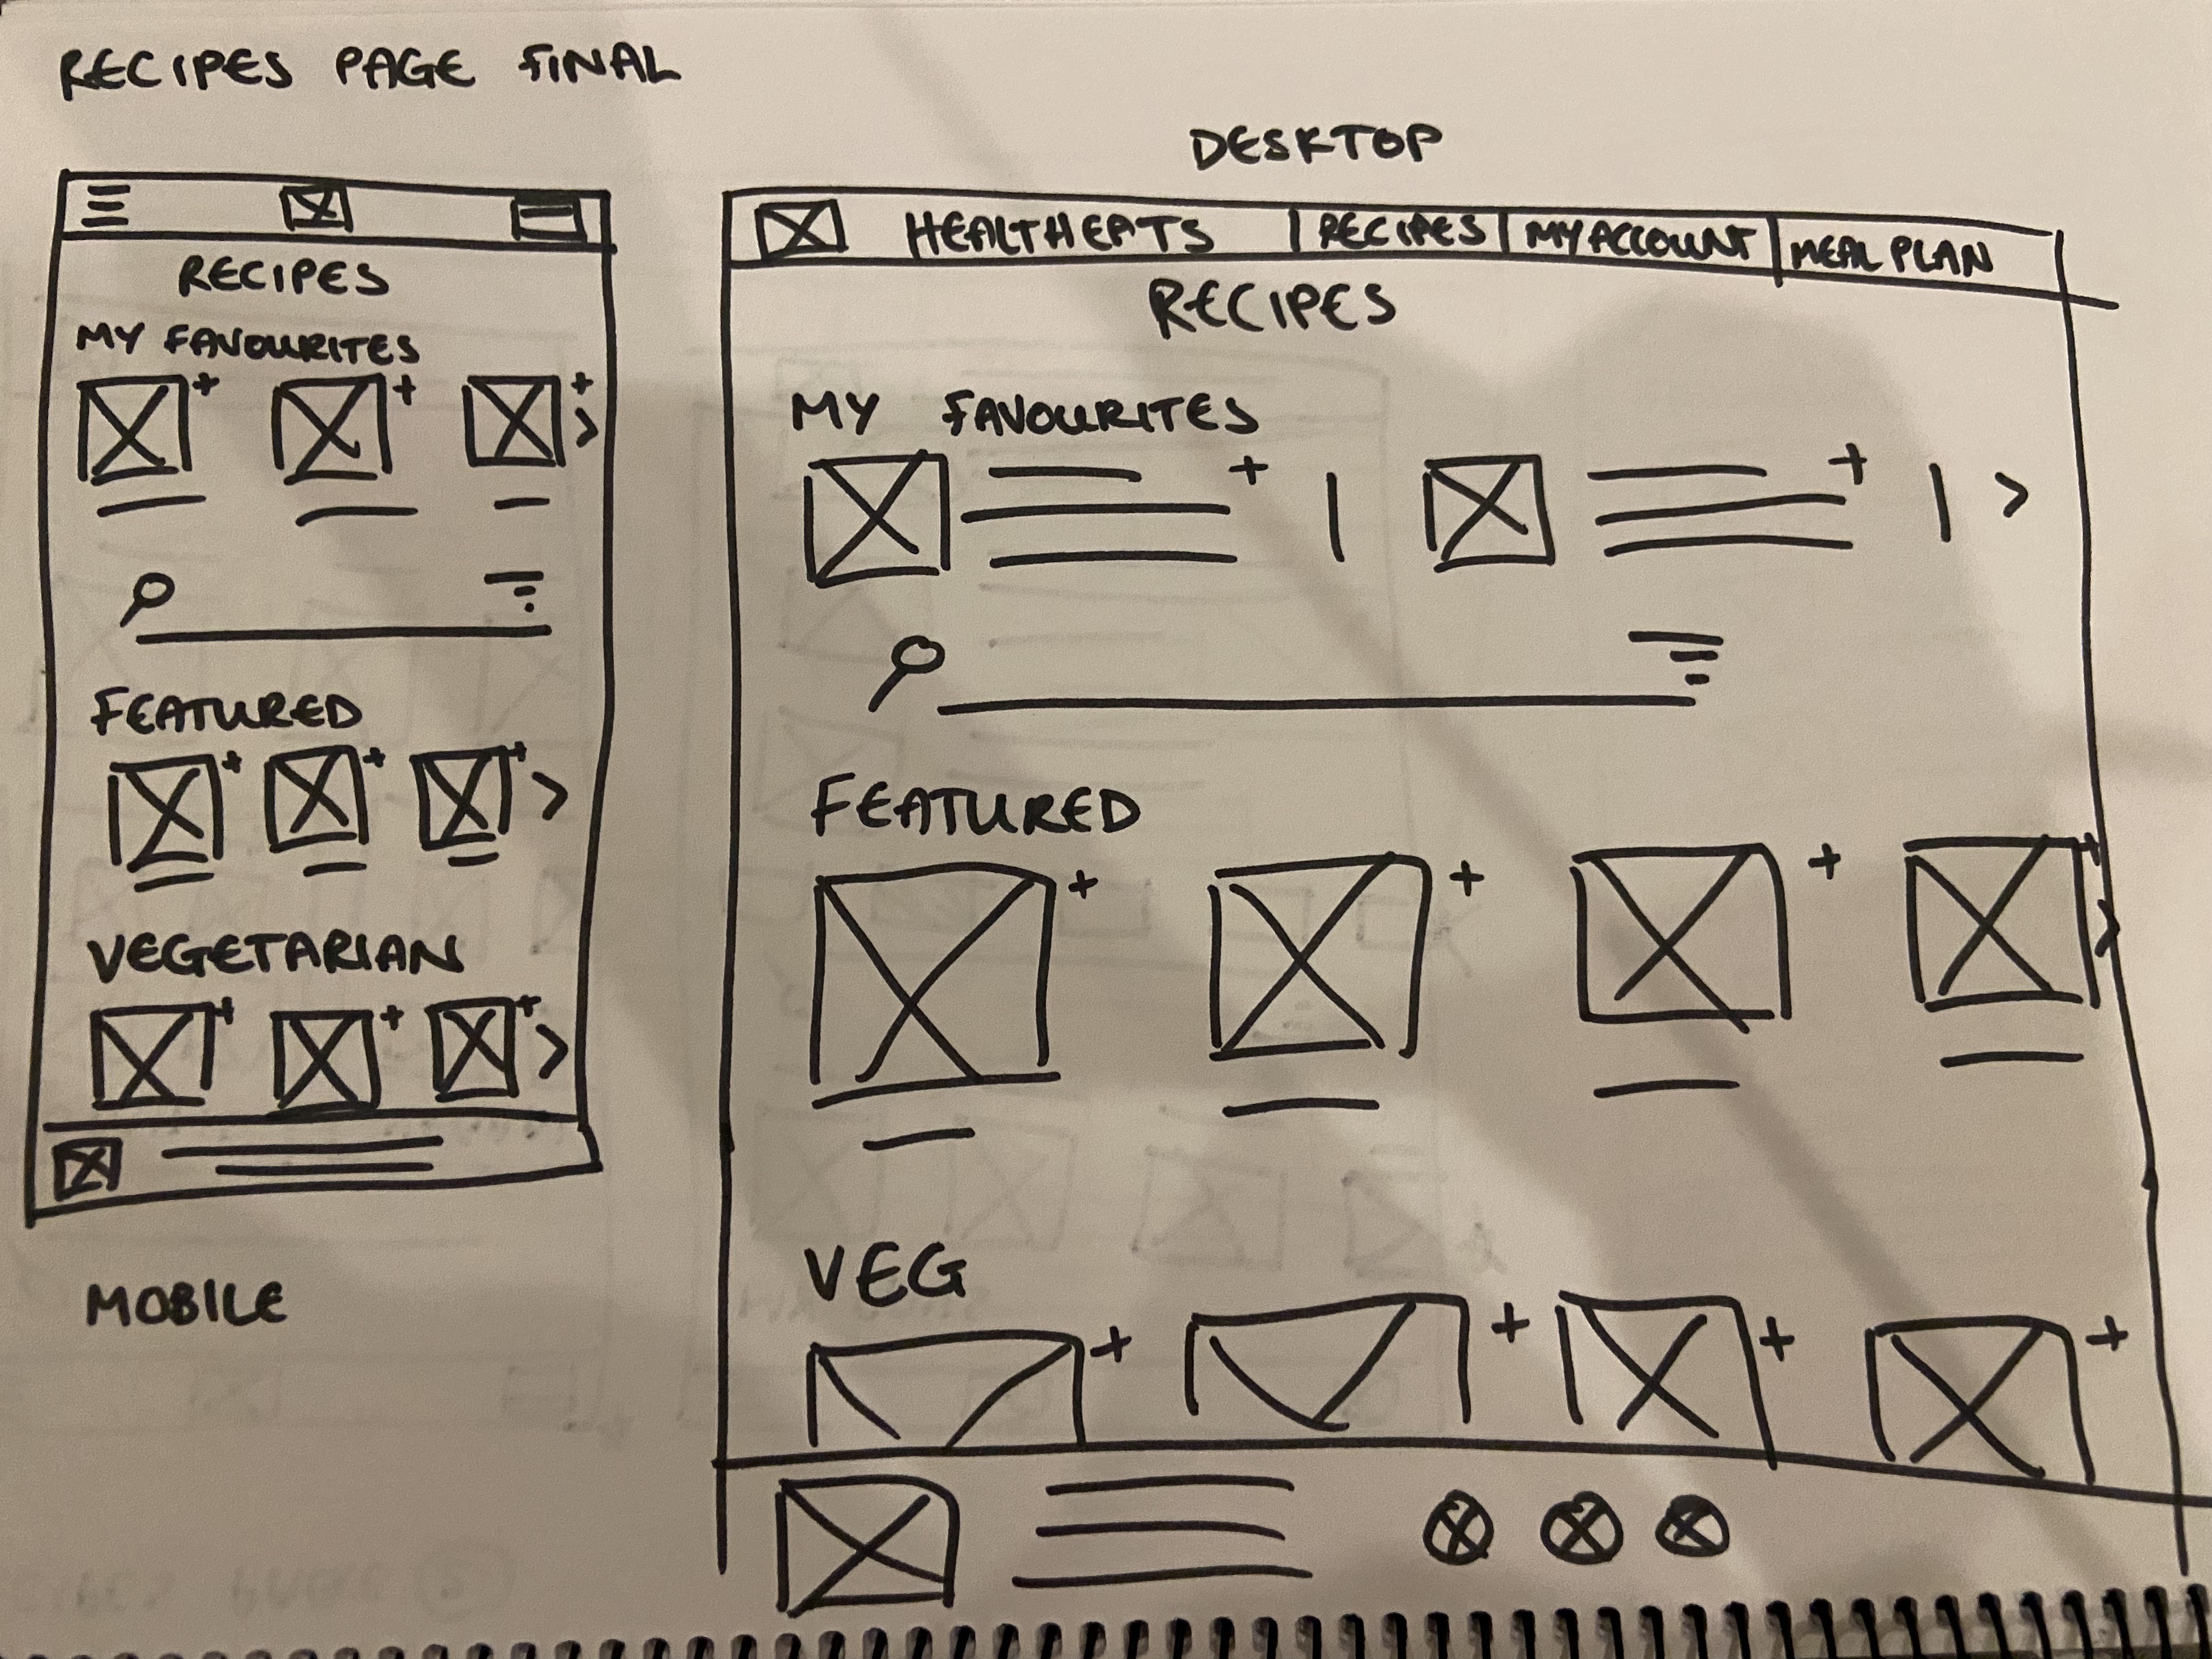 RECIPES PAGE FINAL
RECIPES
MY FAVOURITES
FEATURED
VEGETARIAN
MOBILE
DESKTOP
HEALTHEATS | RECIPES | MY ACCOUNT | MEAL PLAN
RECIPES
MY FAVOURITES
FEATURED
VEG